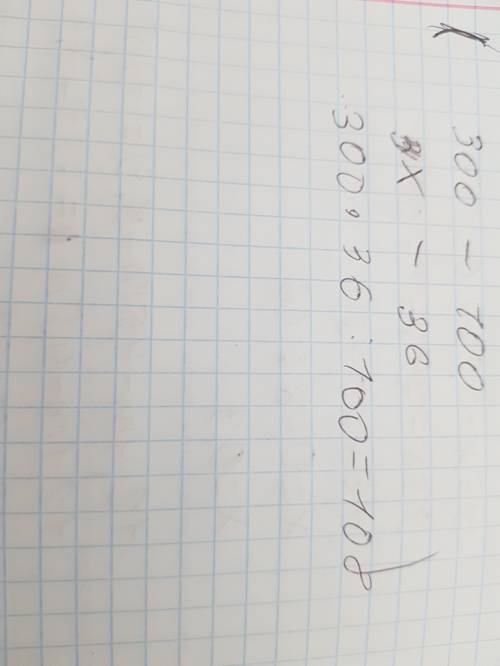 300 - 100
X - 36
300 • 36 : 100 = 108